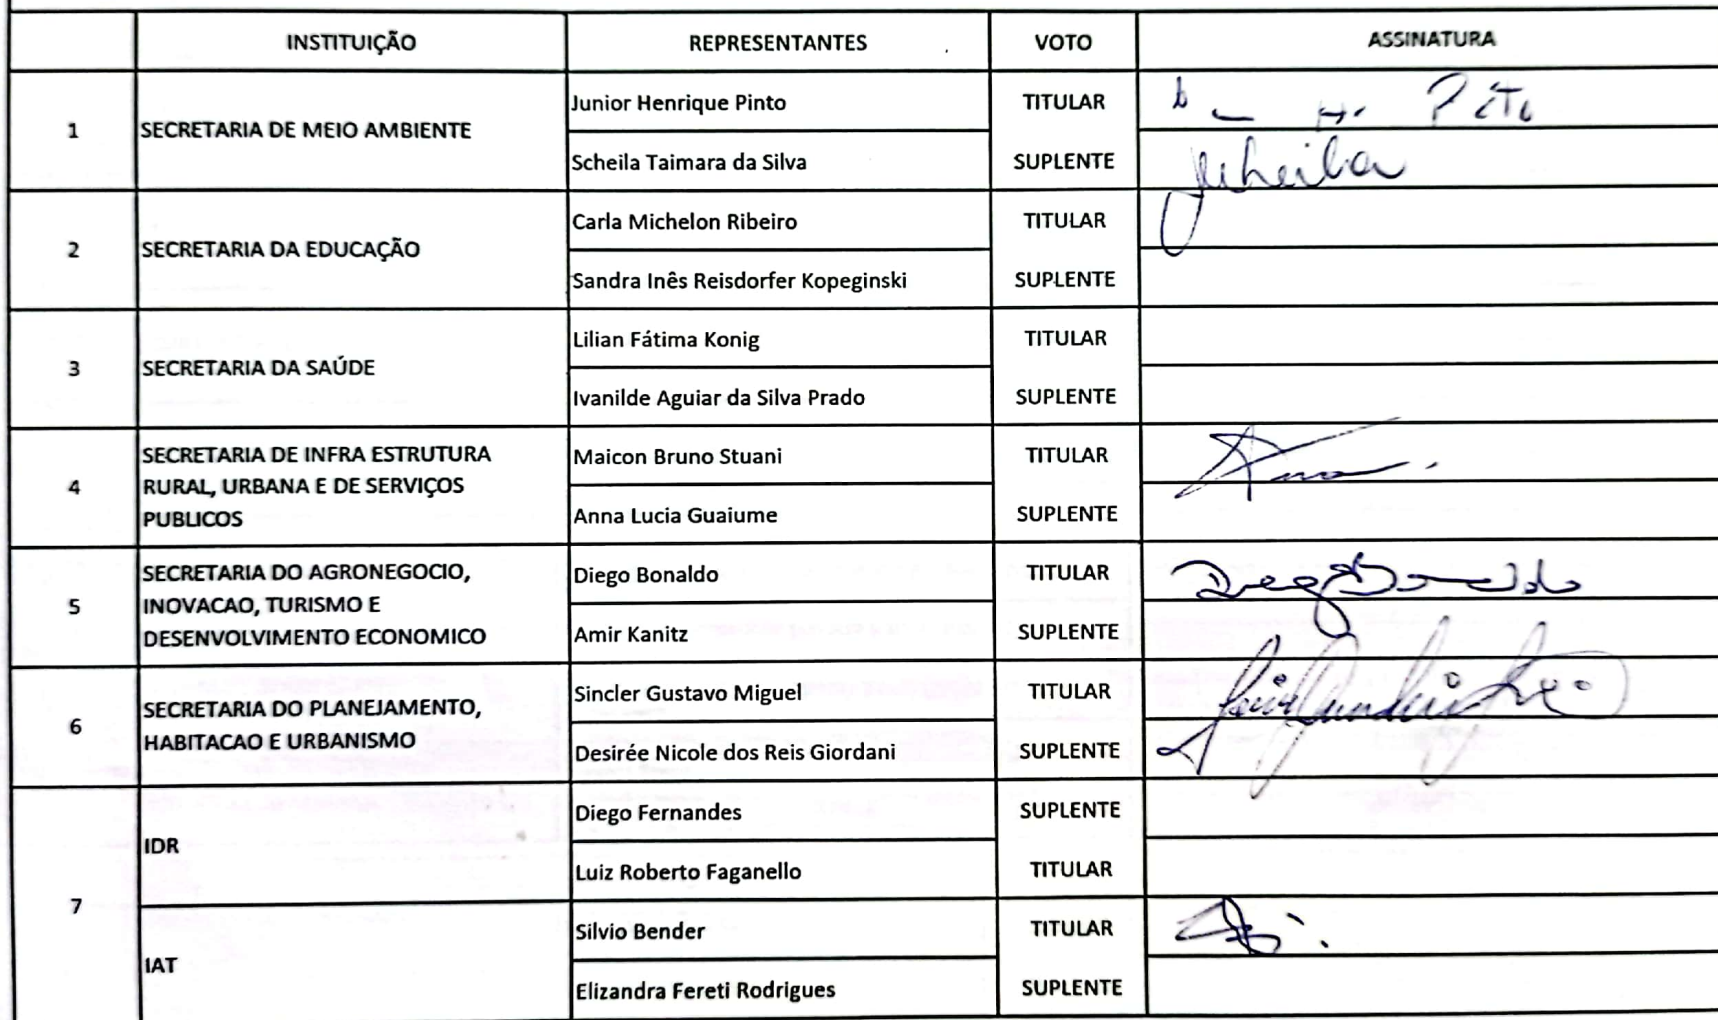 INSTITUIÇÃO REPRESENTANTES VOTO ASSINATURA
1 SECRETARIA DE MEIO AMBIENTE
Junior Henrique Pinto TITULAR
Scheila Taimara da Silva SUPLENTE Scheila
2 SECRETARIA DA EDUCAÇÃO
Carla Michelon Ribeiro TITULAR
Sandra Inês Reisdorfer Kopeginski SUPLENTE
3 SECRETARIA DA SAÚDE
Lilian Fátima Konig TITULAR
Ivanilde Aguiar da Silva Prado SUPLENTE
4 SECRETARIA DE INFRA ESTRUTURA
RURAL, URBANA E DE SERVIÇOS
PUBLICOS
Maicon Bruno Stuani TITULAR
Anna Lucia Guaiume SUPLENTE
5 SECRETARIA DO AGRONEGOCIO,
INOVACAO, TURISMO E
DESENVOLVIMENTO ECONOMICO
Diego Bonaldo TITULAR Diego Bonaldo
Amir Kanitz SUPLENTE
6 SECRETARIA DO PLANEJAMENTO,
HABITACAO E URBANISMO
Sincler Gustavo Miguel TITULAR
Desirée Nicole dos Reis Giordani SUPLENTE
7 IDR
Diego Fernandes SUPLENTE
Luiz Roberto Faganello TITULAR
IAT
Silvio Bender TITULAR
Elizandra Fereti Rodrigues SUPLENTE